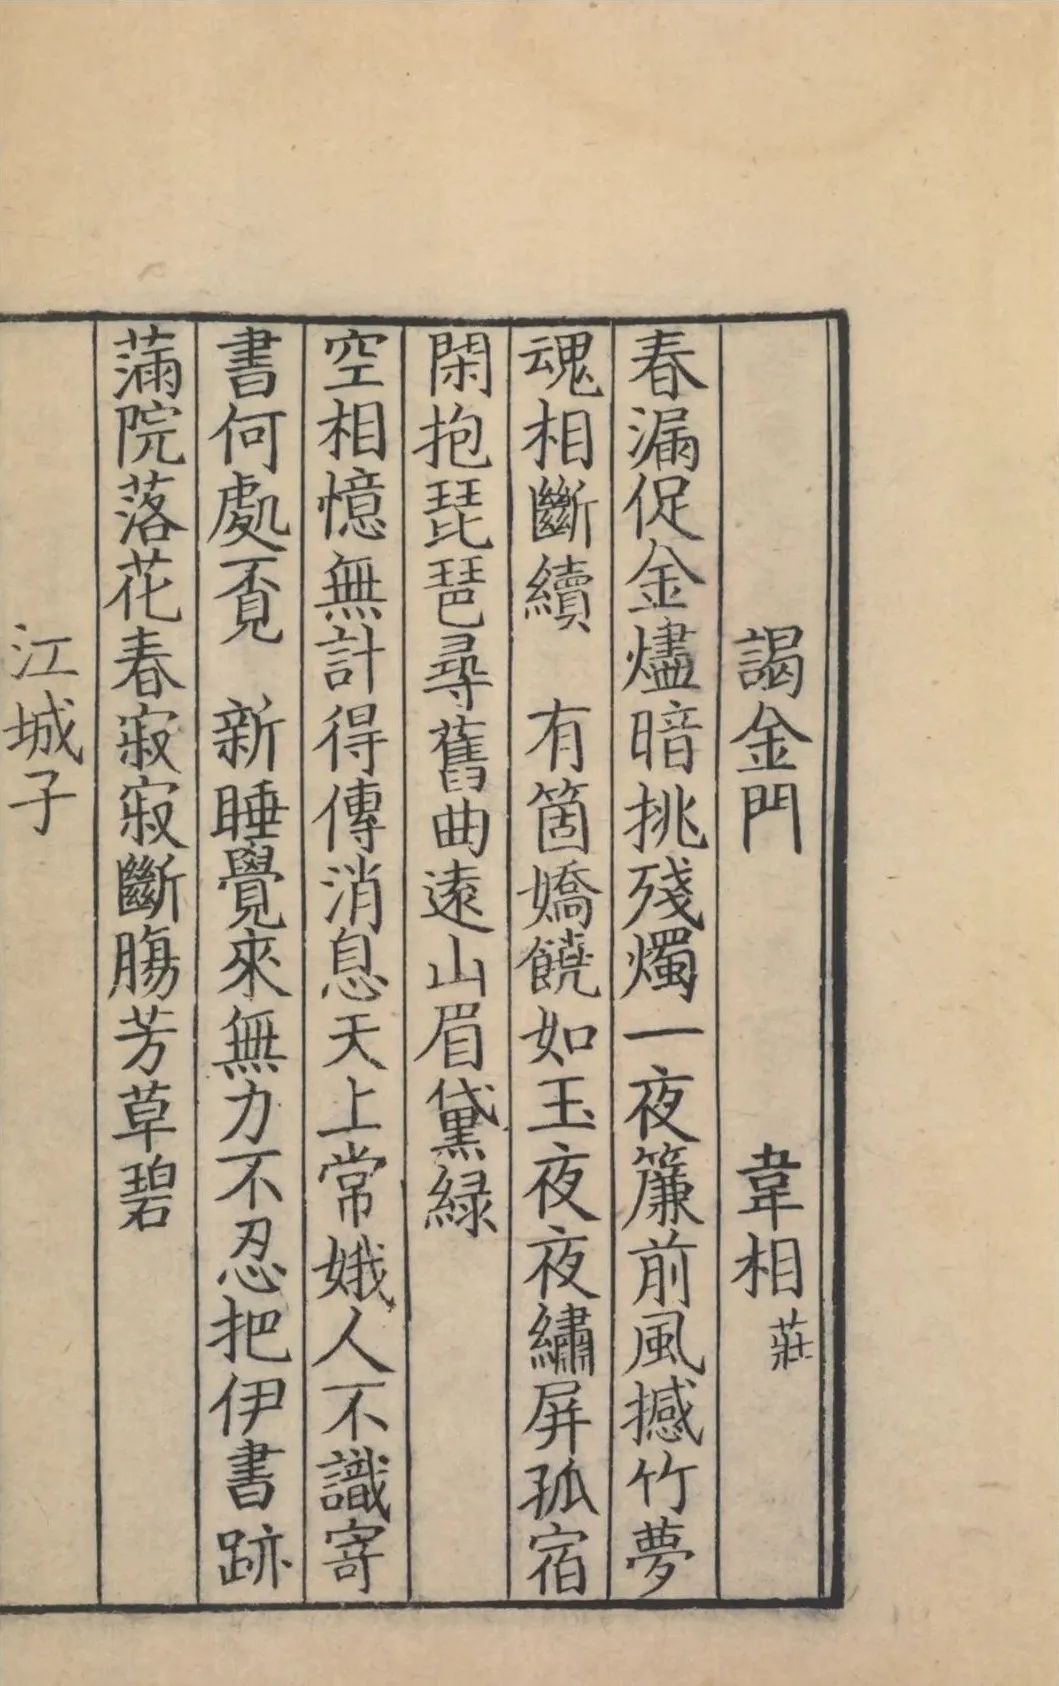 謁金門 韋相莊
春漏促金燼暗挑殘燭一夜簾前風撼竹夢
魂相斷續 有箇嬌饒如玉夜夜繡屏孤宿
閑抱琵琶尋舊曲遠山眉黛緑
空相憶無計得傳消息天上常娥人不識寄
書何處覔 新睡覺來無力不忍把伊書跡
滿院落花春寂寂斷腸芳草碧
江城子